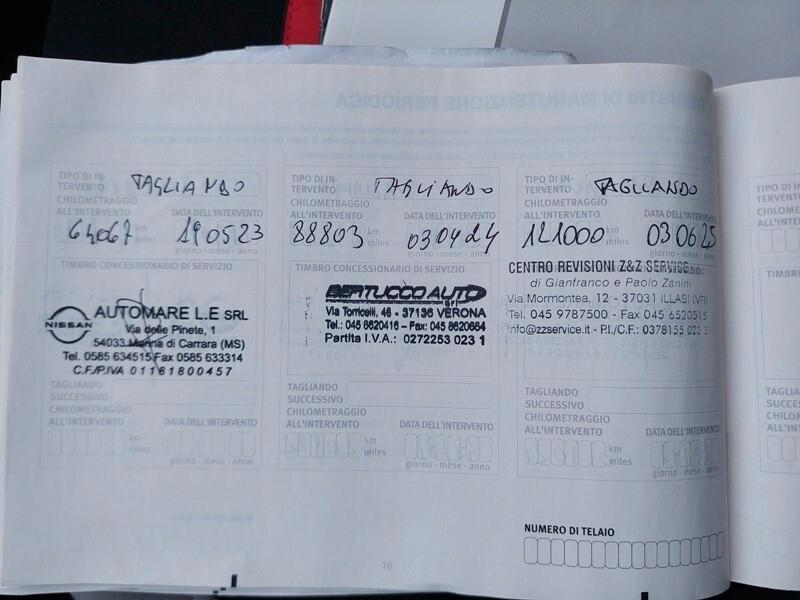 REGISTRI DI MANUTENZIONE PERIODICA
TIPO DI IN-
TERVENTO
TAGLIANDO
CHILOMETRAGGIO
ALL'INTERVENTO
DATA DELL'INTERVENTO
64067
km
miles
190523
giorno - mese - anno
TIMBRO CONCESSIONARIO DI SERVIZIO
NISSAN
AUTOMARE L.E SRL
Via delle Pinete, 1
54033 Marina di Carrara (MS)
Tel. 0585 634515 Fax 0585 633314
C.F./P.IVA 01181800457
TAGLIANDO
SUCCESSIVO
CHILOMETRAGGIO
ALL'INTERVENTO
DATA DELL'INTERVENTO
km
miles
giorno - mese - anno
TIPO DI IN-
TERVENTO
TAGLIANDO
CHILOMETRAGGIO
ALL'INTERVENTO
DATA DELL'INTERVENTO
88803
km
miles
030424
giorno - mese - anno
TIMBRO CONCESSIONARIO DI SERVIZIO
BERTUCCO AUTO
srl
Via Torricelli, 46 - 37136 VERONA
Tel.: 045 8620416 - Fax: 045 8620664
Partita I.V.A.: 0272253 023 1
TAGLIANDO
SUCCESSIVO
CHILOMETRAGGIO
ALL'INTERVENTO
DATA DELL'INTERVENTO
km
miles
giorno - mese - anno
TIPO DI IN-
TERVENTO
TAGLIANDO
CHILOMETRAGGIO
ALL'INTERVENTO
DATA DELL'INTERVENTO
121000
km
miles
030625
giorno - mese - anno
CENTRO REVISIONI Z&Z SERVICE
di Gianfranco e Paolo Zanini
Via Mormontea, 12 - 37031 ILLASI (VR)
Tel. 045 9787500 - Fax 045 6520515
info@zzservice.it - P.I./C.F.: 0378155 023
TAGLIANDO
SUCCESSIVO
CHILOMETRAGGIO
ALL'INTERVENTO
DATA DELL'INTERVENTO
km
miles
giorno - mese - anno
NUMERO DI TELAIO
16
TIPO DI
TERVEN
CHILOM
ALL'INT
TIMBR
TAGLI
SUCCE
CHILO
ALL'IN